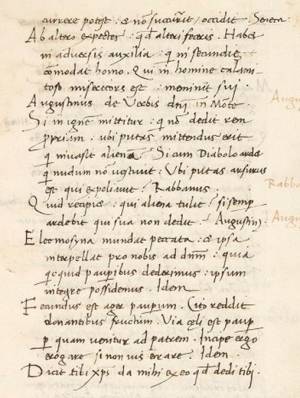 currere potest: & non succurrit, occidit. Seneca
Ab altero expectes: qd alteri feceris. Habes
in adversis auxilia: qui in secundis
comodat homo. Qui in homine calami
toso misericors est: meminit sui
Augustinus de Verbis dni in Mote
Si in igne mittitur: qui no dedit ven
ubi putas mittendus erit
q invasit aliena. Si cum Diabolo arde
q nudum no vestivit. Ubi putas arsurus
est qui expoliavit. Rabbanus.
Quid recipiet: qui aliena tulit: si semp
ardebit qui sua non dedit. Augustin
Elemosyna mundat peccata: & ipsa
interpellat pro nobis ad dnm: quia
qcquid pauperibus dederimus: ipsum
integre possidemus. Idem
Fecundus est ager pauperum. Cito reddit
donantibus fructum. Via celi est paup
p quam venitur ad patrem. Incipe ergo
erogare si non vis errare. Idem.
Dicit tibi xps da mihi ex eo qd dedi tibi.
Augu
Rabba
Augu